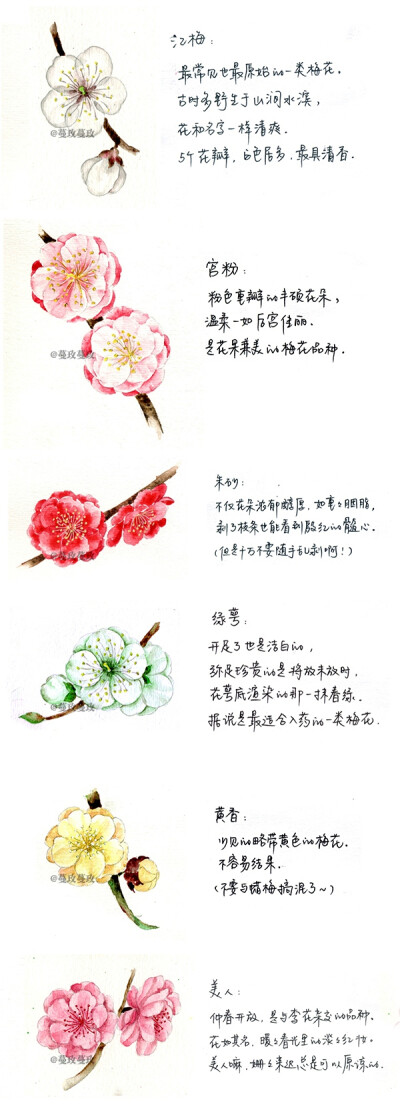 江梅：
最常见也最原始的一类梅花．
古时多野生于山涧水滨，
花和名字一样清爽．
5个花瓣，白色居多，最具清香．
@蔓玫蔓玫
宫粉：
粉色重瓣的丰硕花朵，
温柔一如后宫佳丽．
是花果兼美的梅花品种．
@蔓玫蔓玫
朱砂：
不仅花朵浓郁醇厚，如重重胭脂，
剥了枝条也能看到殷红的髓心．
（但是千万不要随手乱剥啊！）
@蔓玫蔓玫
绿萼：
开足了也是洁白的，
弥足珍贵的是将放未放时，
在萼底渲染的那一抹春绿．
据说是最适合入药的一类梅花．
@蔓玫蔓玫
黄香：
少见的略带黄色的梅花．
不容易结果．
（不要与蜡梅搞混了~）
@蔓玫蔓玫
美人：
仲春开放，是与李花杂交的品种．
花如其名，暖暖春光里的淡淡红妆．
美人嘛，姗姗来迟总是可以原谅的．
@蔓玫蔓玫